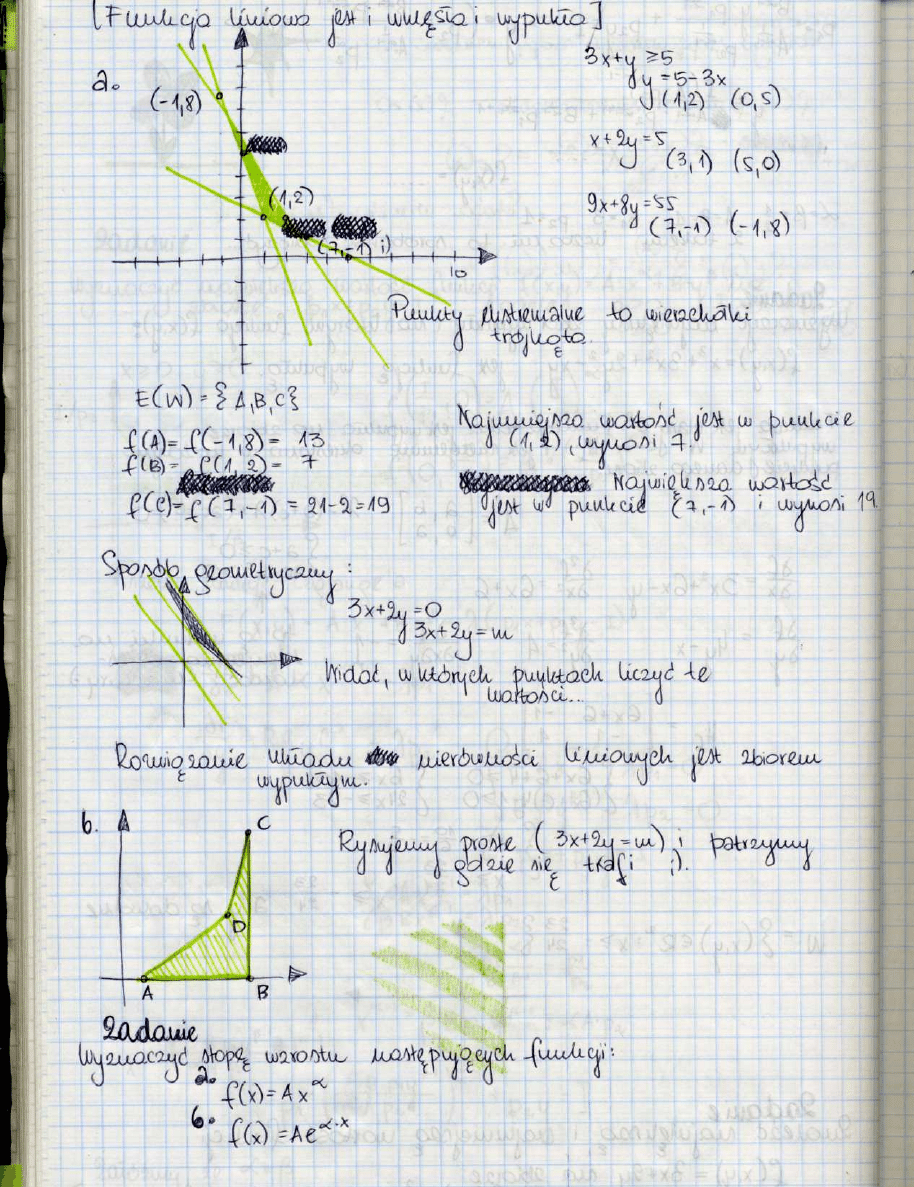 [Funkcja liniowa jest i wklęsła i wypukła]
a.
(-1,8)
(1,2)
(7,-1) i)
10
3x+y ≥5
y = 5-3x
(1,2) (0,5)
x+2y=5
(3,1) (5,0)
9x+8y=55
(7,-1) (-1,8)
Punkty ekstremalne to wierzchołki
trójkąta.
E(W) = {A,B,C}
f(A)= f(-1,8)= 13
f(B)= f(1,2)= 7
f(C)= f(7,-1) = 21-2=19
Najmniejsza wartość jest w punkcie
(1,2), wynosi 7
Największa wartość
jest w punkcie (7,-1) i wynosi 19.
Sposób geometryczny:
3x+2y=0
3x+2y=m
Widać, w których punktach liczyć te
wartości...
Rozwiązanie układu nierówności liniowych jest zbiorem
wypukłym.
b.
C
D
A
B
Rysujemy proste (3x+2y=m) i patrzymy
gdzie się trafi ;).
Zadanie
Wyznaczyć stopę wzrostu następujących funkcji:
a.
f(x)= Ax^α
b.
f(x)=Ae^α·x